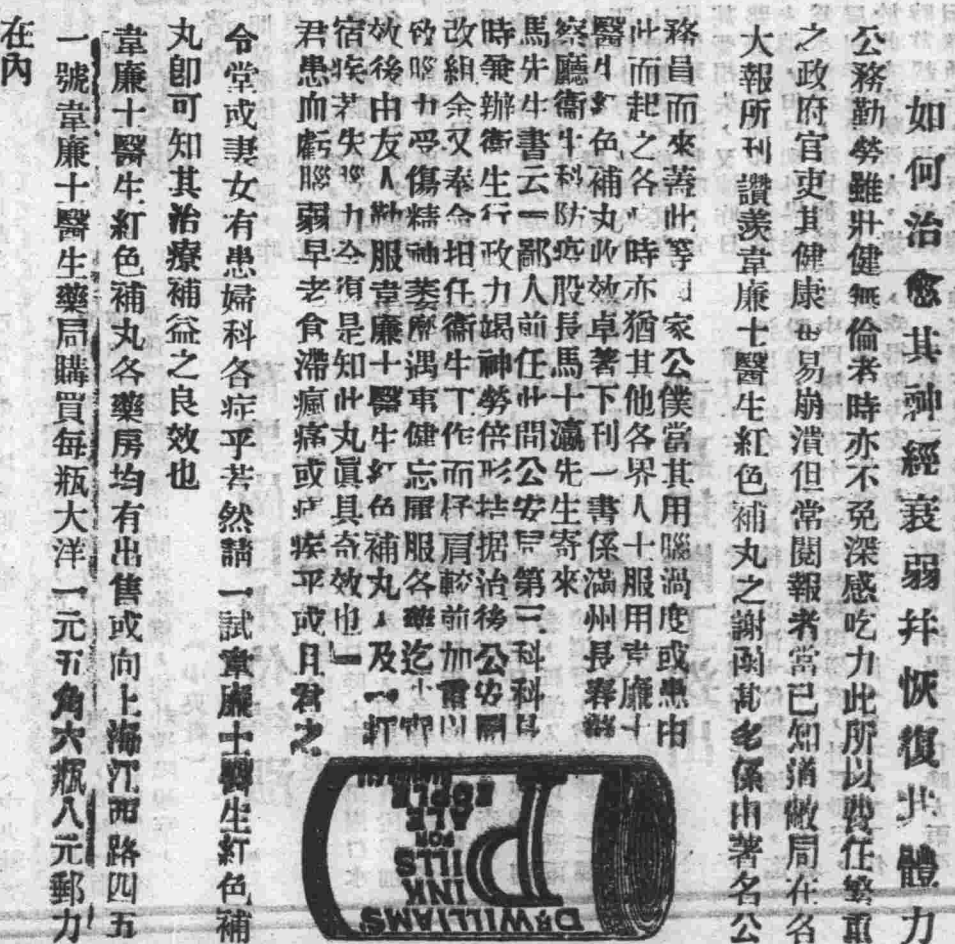 如何治愈其神經衰弱幷恢復其體力
公務勤勞雖壯健無倫者時亦不免深感吃力此所以責任繁重
之政府官吏其健康易崩潰但常閱報者當已知道敝局在各
大報所刊讚羨韋廉士醫生紅色補丸之謝函甚多係由著名公
務員而來蓋此等家公僕當其用腦過度或患由
此而起之各時亦猶其他各界人士服用韋廉士
醫生紅色補丸收效卓著下刊一書係滿州長春警
察廳衞生科防疫股長馬十瀛先生寄來
馬先生書云一鄙人前任此間公安局第三科科員
時兼辦衞生行政力竭神勞倍形拮据治後公安局
改組余又奉令担任衞生工作而仔肩較前加重以
致腦力受傷精神萎靡遇事健忘屢服各藥迄少
效後由友人勸服韋廉士醫生紅色補丸及一打
宿疾若失腦力今復是知此丸眞具奇效也
君患血虧腦弱早老食滯瘋痛或疾乎或且君之
令堂或妻女有患婦科各症乎若然請一試韋廉士醫生紅色補
丸卽可知其治療補益之良效也
韋廉士醫生紅色補丸各藥房均有出售或向上海江西路四五
一號韋廉士醫生藥局購買每瓶大洋一元五角六瓶八元郵力
在內
DR. WILLIAMS'
PINK
PILLS
FOR
PALE
PEOPLE